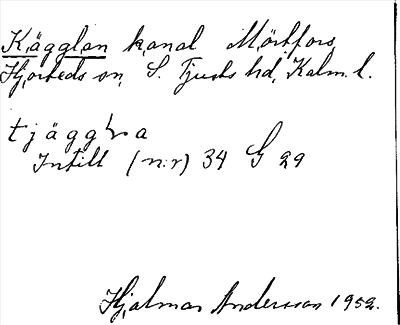 Kägglan kanal Mörtfors,
Hjorteds sn, S. Tjusts hd, Kalm. l.
tjäggɭa
Intill (n:r) 34 G 29
Hjalmar Andersson 1952.